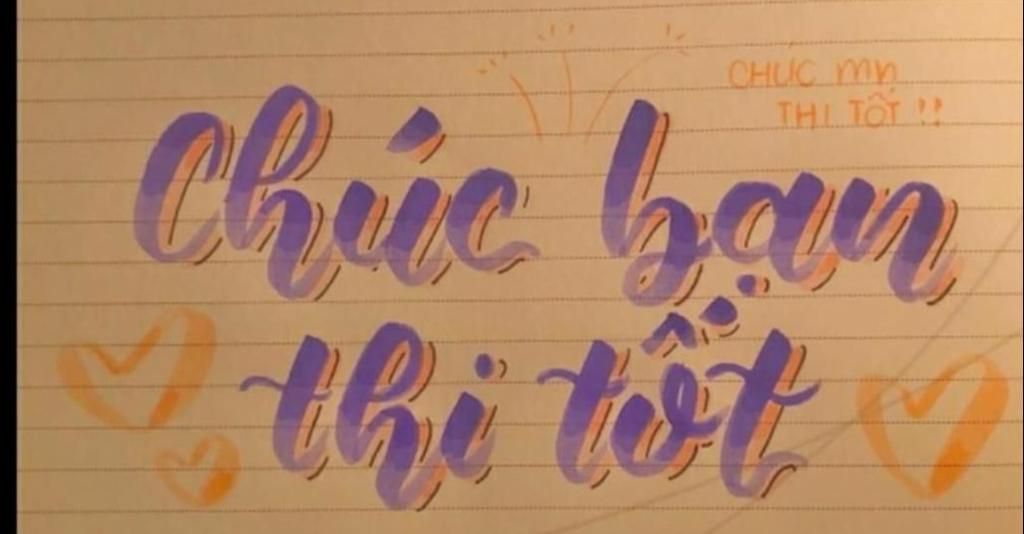 CHÚC mn
THI TỐT !!
Chúc bạn
thi tốt